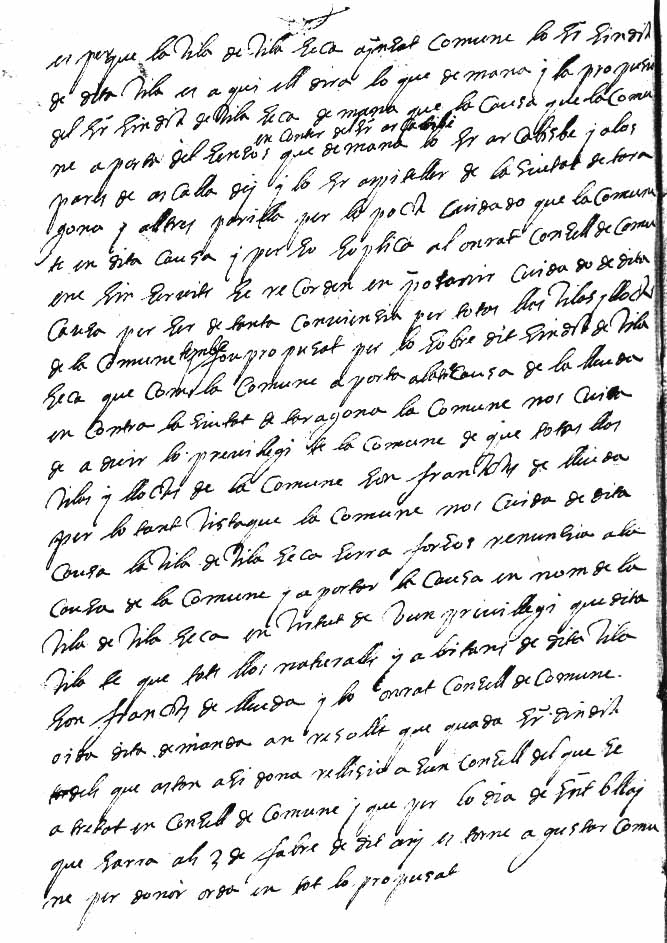 es perque la Vila de Vila Seca ajuntat comune lo Sr Sindich
de dita Vila es aqui ell dira lo que demana y la propusa
del Sr Sindich de Vila Seca demana que la Causa que la Comu
en contra del Sr arcabisbe
ne aporta del Sensos que demana lo Sr arcabisbe y a los
pares de ascalla dij y lo Sr aspitaller de la Siutat de tara
gona y altres parilla per lo poch Cuidado que la Comune
te en dita Causa y per So Soplica al onrat Consell de Comu
ene Sin Servits Se recorden en posarir Cuidado de dita
Causa per Ser de tanta Conviensia per totas llas Vilas y llochs
de la Comune tembe fou propusat per lo Sobre dit Sindich de Vila
Seca que Com la Comune aporta altre Causa de la lleuda
en Contra la Siutat de taragona la Comune nos Cuida
de aduir lo previlegi te la Comune de que totas llas
Vilas y llochs de la Comune Son franchs de lleuda
per lo tant Vista que la Comune nos Cuida de dita
Causa la Vila de Vila Seca Serra forsos renunsia a la
Causa de la Comune y aportar la Causa en nom de la
Vila de Vila Seca en Virtut de Vun privillegi que dita
Vila te que tots llos naturalls y abitans de dita Vila
Son franchs de lleuda y lo onrat Consell de Comune
oida dita demanda an resolt que quada Sr Sindich
dels que astan asi dona rellisio a Sun Consell del que Se
a tretat en Consell de Comune y que per lo dia de Snt bllay
que Sarra als 3 de fabre de dit any es torne a gustar Comu
ne per donar orda en tot lo propusat